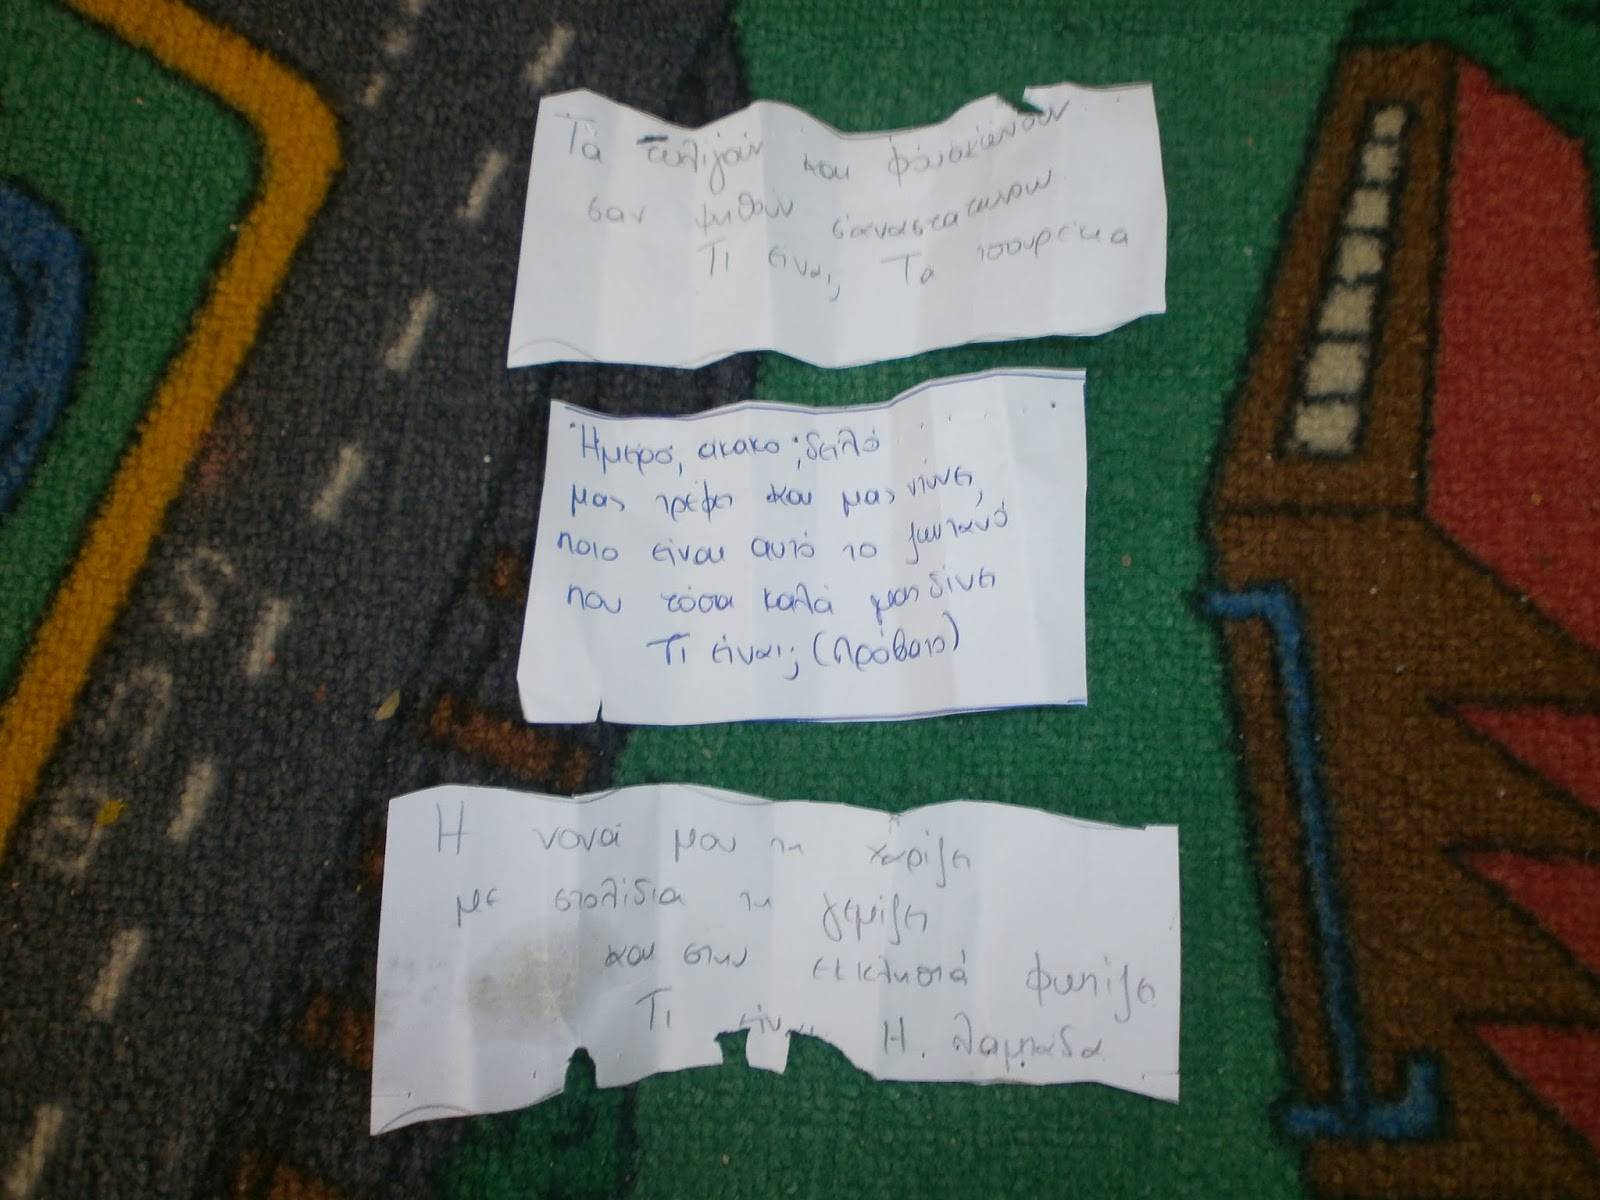 Τα τυλιγουν και φουσκώνουν
σαν ψηθούν
Τι είναι; Τα τσουρέκια
Ήμερο, άκακο, δειλό
μας τρέφει και μας ντύνει,
ποιο είναι αυτό το ζωντανό
που τόσα καλά μας δίνει
Τι είναι; (πρόβατο)
Η νονά μου τη χαρίζει
με στολίδια τη γεμίζει
και στην εκκλησιά φωτίζει
Τι είναι Η λαμπαδα